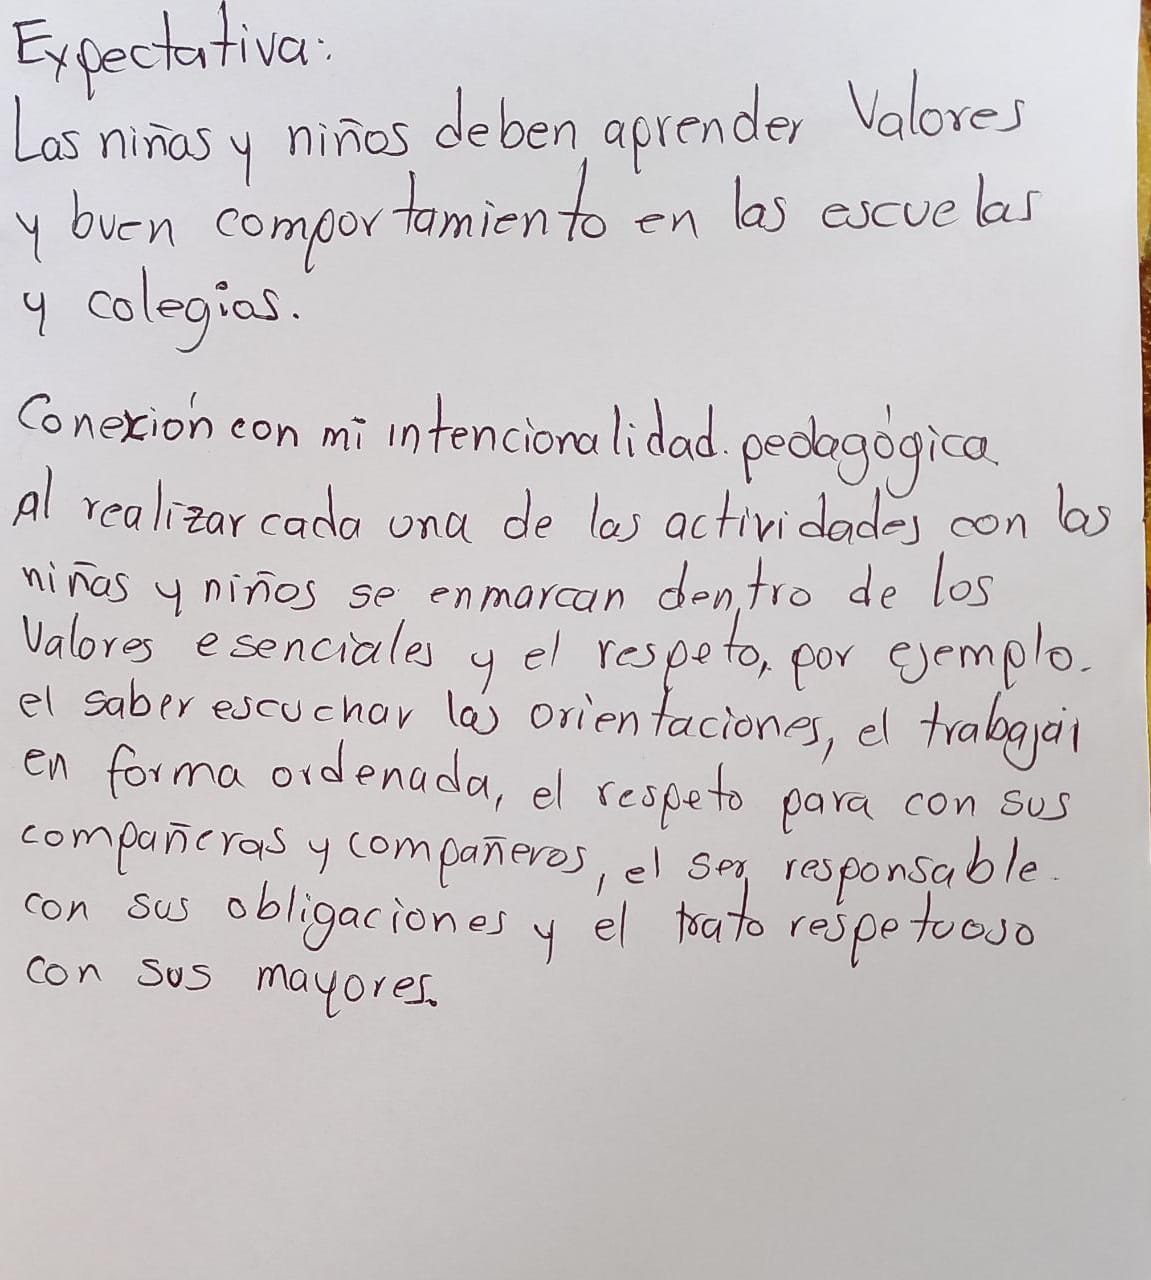 Expectativa:
Las niñas y niños deben aprender Valores
y buen comportamiento en las escuelas
y colegios.
Conexión con mi intencionalidad. pedagógica
Al realizar cada una de las actividades con las
niñas y niños se enmarcan dentro de los
Valores esenciales y el respeto, por ejemplo.
el saber escuchar las orientaciones, el trabajar
en forma ordenada, el respeto para con sus
compañeras y compañeros, el ser responsable.
con sus obligaciones y el trato respetuoso
con sus mayores.